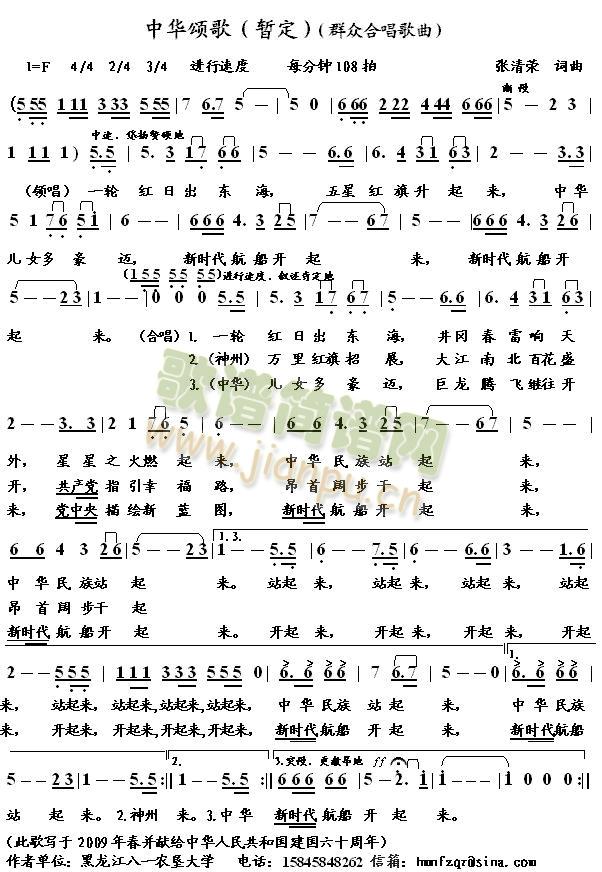 中华颂歌（暂定）(群众合唱歌曲)
1=F 4/4 2/4 3/4 进行速度 每分钟108拍 张清荣 词曲
渐慢
(5 55 1 11 3 33 5 55 | 7 6.7 5 — | 5 0 | 6 66 2 22 4 44 6 66 | 5 — 2 3 |
中速、悠扬赞颂地
1 11 1 ) 5.5 | 5. 3 17 66 | 5 — — 6.6 | 6. 4 31 63 | 2 — — 3.3 |
(领唱) 一轮 红 日 出 东 海， 五星 红 旗 升 起 来， 中华
5 1 76 5i | 6 — — | 666 4. 3 25 | 7 — — 67 | 5 — — | 666 4. 3 26 |
儿 女 多 豪 迈， 新时代 航 船 开 起 来， 新时代 航 船 开
(1 55 55 55) 进行速度、叙述肯定地
5 — — 23 | 1 — — | 0 0 0 5.5 | 5. 3 17 67 | 5 — — 6.6 | 6. 4 31 63 |
起 来。 (合唱) 1. 一轮 红 日 出 东 海， 井冈 春 雷 响 天
2. (神州) 万 里 红旗 招 展， 大江 南 北 百花 盛
3. (中华) 儿 女 多 豪 迈， 巨龙 腾 飞 继往 开
2 — — 3. 3 | 2 1 76 5 | 6 — — | 6 6 4. 3 25 | 7 — — 67 | 5 — — |
外， 星 星 之 火 燃 起 来， 中 华 民 族 站 起 来，
开， 共产党 指 引 幸 福 路， 昂 首 阔 步 干 起 来，
来， 党中央 描 绘 新 蓝 图， 新时代 航 船 开 起 来，
1. 3.
6 6 4 3 26 | 5 — — 23 | 1 — — 5.5 | 6 — — 7.5 | 6 — — 6.6 | 3 — — 1.6 |
中 华 民 族 站 起 来。 站起 来， 站起 来， 站起 来， 站起
昂 首 阔 步 干 起
新时代 航 船 开 起 来。 开起 来， 开起 来， 开起 来， 开起
1.
2 — — 555 | 111 333 555 0 | 6. 6 66 | 7 6.7 | 5 — — 0 | 6. 6 66 |
来， 站起来， 站起来，站起来，站起来， 中 华 民族 站 起 来， 中 华 民族
来， 开起来， 开起来，开起来，开起来， 新时代 航船 开 起 来， 新时代 航船
2. 3.突慢、更激昂地 ff
5 — 23 | 1 — 5.5 :|| 1 — — 5.5 :|| 666 66 | 5 — 2. i | i — — | i 0 0 0 :||
站 起 来。2.神州 来。3.中华 新时代 航船 开 起 来。
(此歌写于2009年春并献给中华人民共和国建国六十周年)
作者单位：黑龙江八一农垦大学 电话：15845848262 信箱：hmmfzqr@sina.com
歌谱简谱网
www.jianpu.cn